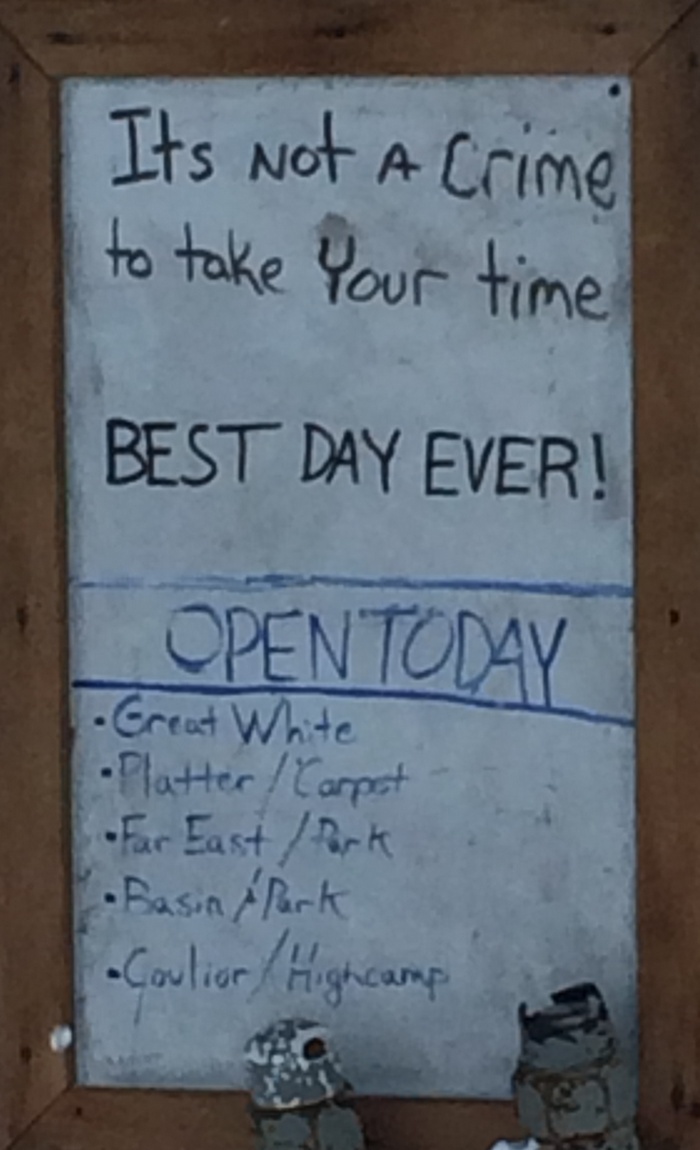 Its Not A Crime
to take Your time
BEST DAY EVER!
OPEN TODAY
• Great White
• Platter / Carpet
• Far East / Park
• Basin / Park
• Coulior / Highcamp